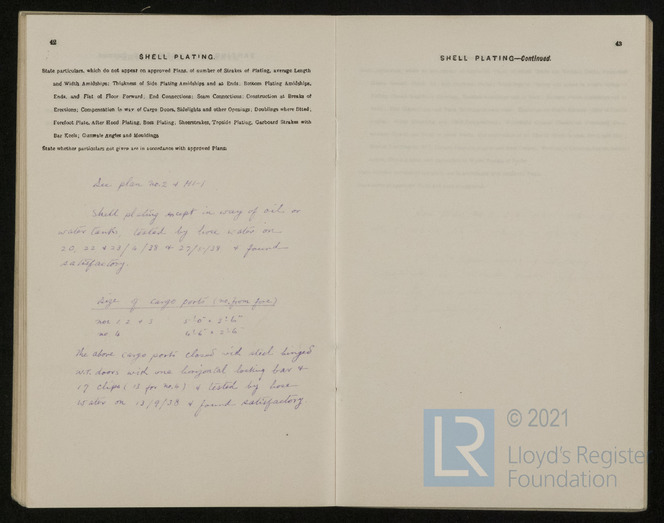 42
SHELL PLATING.
State particulars, which do not appear on approved Plans, of number of Strakes of Plating, average Length
and Width Amidships; Thickness of Side Plating Amidships and at Ends; Bottom Plating Amidships,
Ends, and Flat of Floor Forward; End Connections; Seam Connections; Construction at Breaks of
Erections; Compensation in way of Cargo Doors, Sidelights and other Openings; Doublings where fitted;
Forefoot Plate, After Hood Plating, Boss Plating; Sheerstrakes, Topside Plating, Garboard Strakes with
Bar Keels; Gunwale Angles and Mouldings.
State whether particulars not given are in accordance with approved Plans.
See plan no. 2 +
Shell plating except in way of oil or
water tanks, tested by hose water on
20, 22 + 23/ /38 + /38 + found
satisfactory.
Size of cargo ports (nos. from fore)
nos. 1 2 + 3
no. 4
The above cargo ports closed with steel hinged
W.T. doors with one horizontal locking bar +
17 clips (15 for no. 4) + tested by hose
water on 13/9/38 + found satisfactory.
43
SHELL PLATING—Continued.
LR
© 2021
Lloyd's Register
Foundation